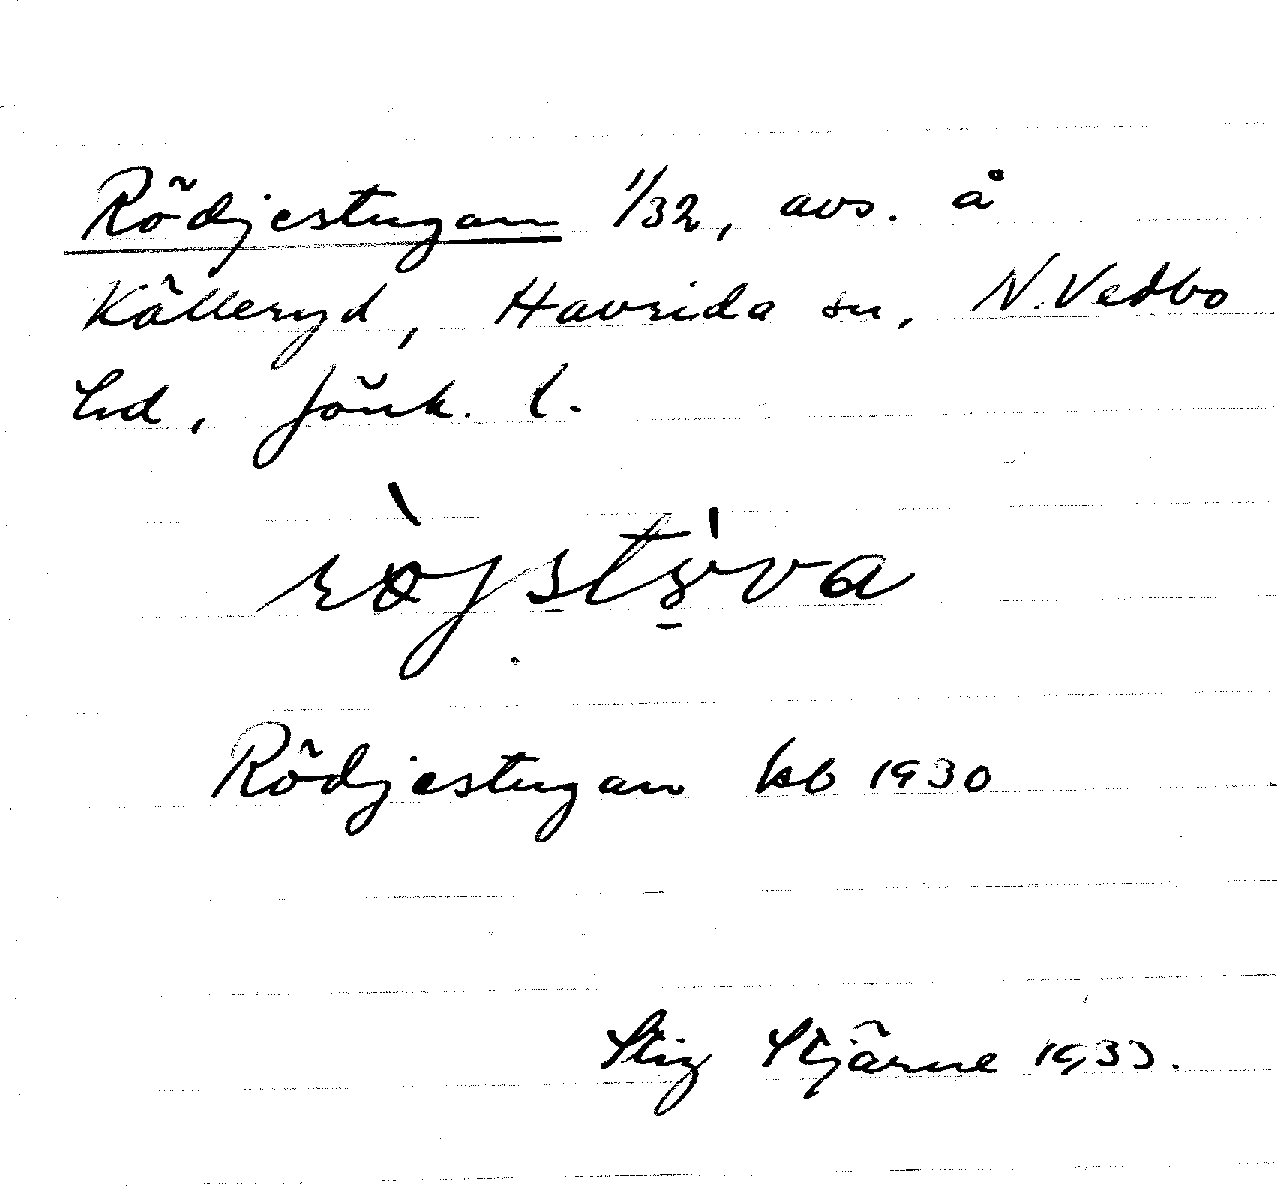 Rödjestugan 1/32, avs. å
Källeryd, Haurida sn, N. Vedbo
hd, Jönk. l.
Rödjestugan kb 1930
Stig Stjärne 1933.